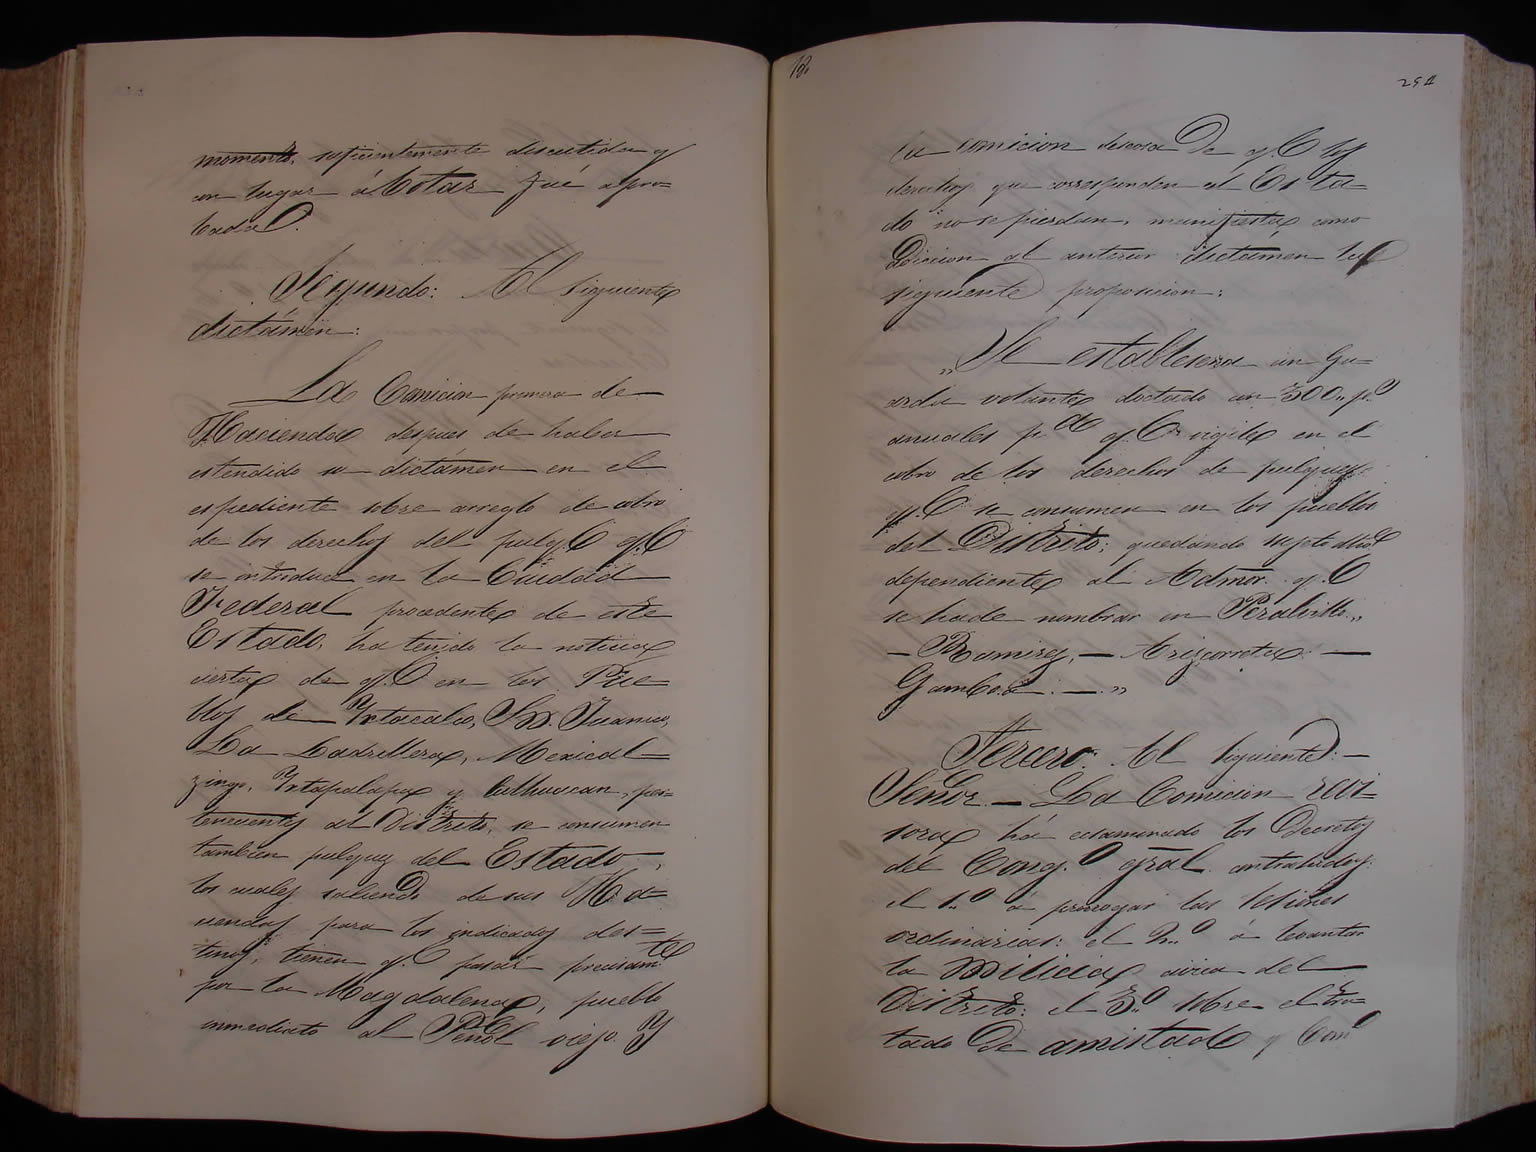 momento, suficientemente discutido y
con lugar á botar fué apro=
bado.
Segundo: Al siguiente
dictámen:
La Comicion primera de
Hacienda despues de haber
estendido su dictámen en el
espediente sobre arreglo de cobro
de los derechos del pulq.e q.e
se introduce en la Ciudad
Federal procedente de este
Estado, ha tenido la noticia
cierta de q.e en los Pue=
blos de Yxtacalco, Sn. Juanico,
La Ladrillera, Mexical=
zingo, Yxtapalapa y Culhuacan, per=
tenecientes al Distrito, se consumen
tambien pulques del Estado,
los cuales saliendo de sus Ha=
ciendas para los indicados des=
tinos, tienen q.e pasar precisam.te
por la Magdalena, pueblo
inmediato al Peñol viejo. Y
18.
251
la comicion deseosa De q.e los
derechos que corresponden al Esta=
do no se pierdan, manifiesta como
adicion al anterior dictamen la
siguiente proposicion:
„Se establesera un Gu=
arda volante doctado con 300„ p.s
anuales p.a q.e vigile en el
cobro de los derechos de pulques
q.e se consumen en los pueblos
del Distrito; quedando sujeto
dependiente al Admor. q.e
se hade nombrar en Peralvillo.„
— Ramirez, — Arizcorreta. —
Gamboa. —.„
Tercero: Al siguiente: —
Señor — La Comicion revi=
sora há ecsaminado los Decretos
del Cong.o gral. contrahidos:
el 1.o a prorrogar las sesiones
ordinarias: el 2.o á levantar
la Milicia civica del
Distrito: el 3.o sobre el tra=
tado De amistad y Com.o